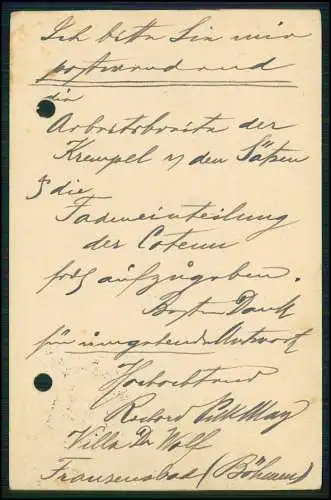 Ich bitte Sie mir
postwendend
die
Arbeitsbreite der
Krempel & den Sätzen
& die
Fadeneinteilung
der Coteun
frdl aufzugeben.
Besten Dank
für umgehende Antwort
Hochachtend
Richard
Villa Dr Wolf
Franzensbad (Böhmen)